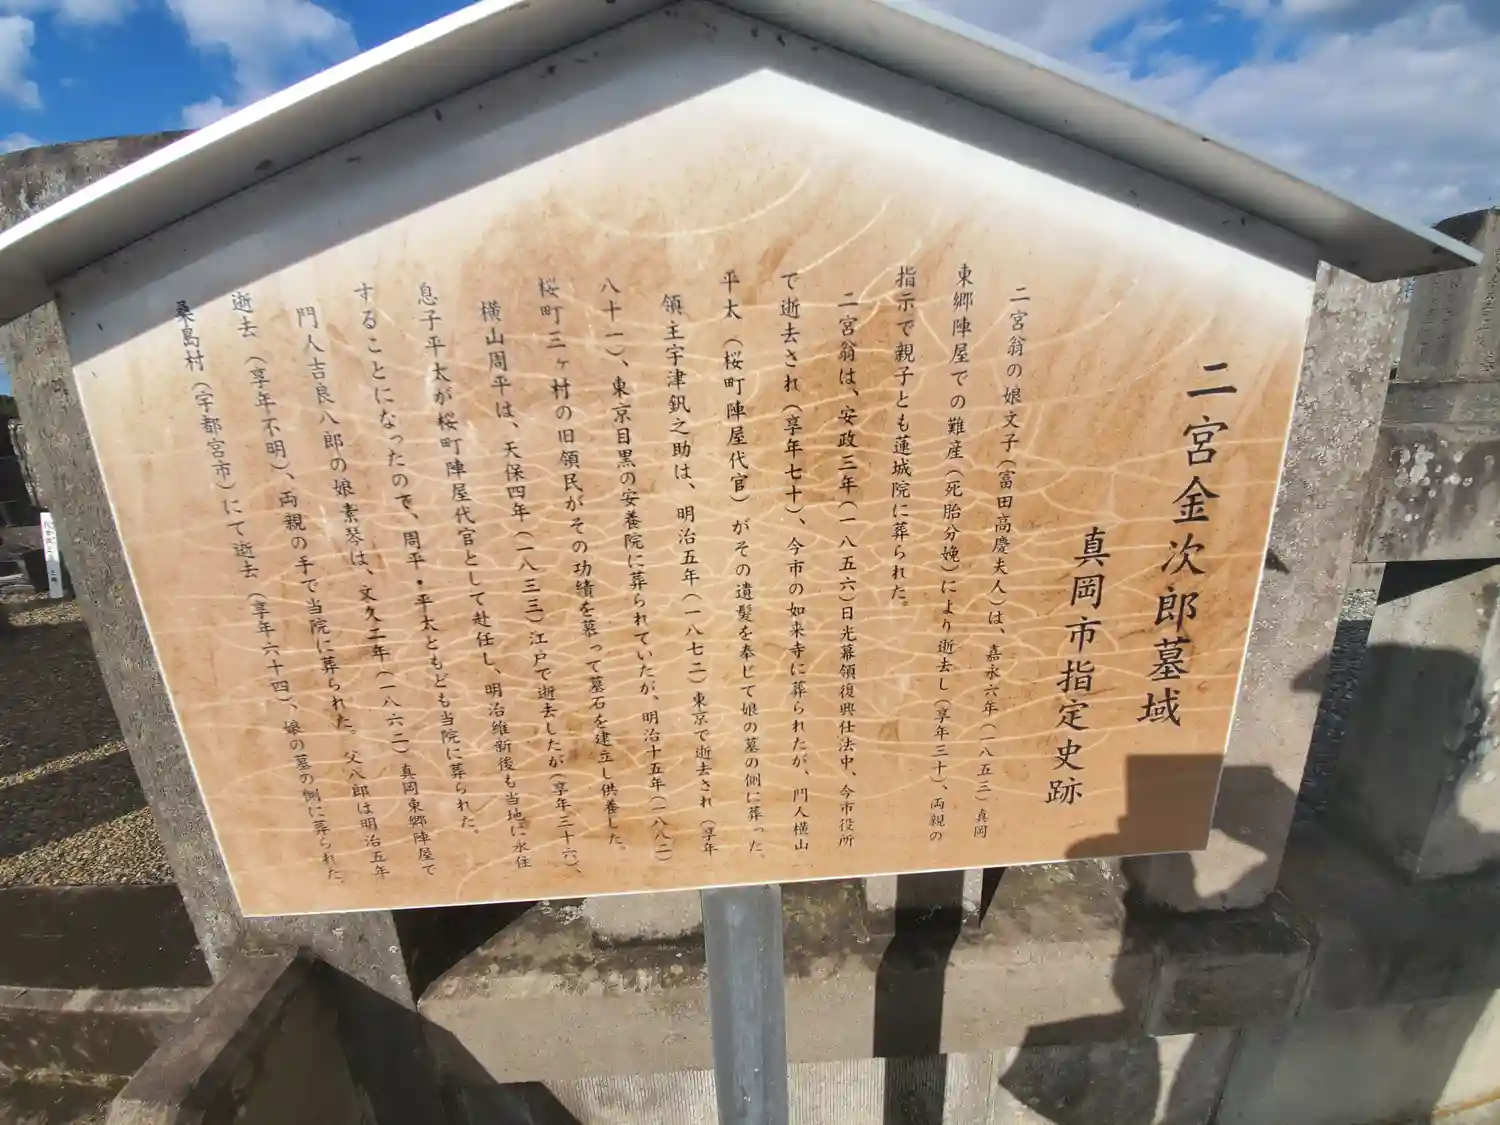 二宮金次郎墓域
真岡市指定史跡
二宮翁の娘文子（富田高慶夫人）は、嘉永六年（一八五三）真岡
東郷陣屋での難産（死胎分娩）により逝去し（享年三十）、両親の
指示で親子とも蓮城院に葬られた。
二宮翁は、安政三年（一八五六）日光幕領復興仕法中、今市役所
で逝去され（享年七十）、今市の如来寺に葬られたが、門人横山
平太（桜町陣屋代官）がその遺髪を奉じて娘の墓の側に葬った。
領主宇津釩之助は、明治五年（一八七二）東京で逝去され（享年
八十一）、東京目黒の安養院に葬られていたが、明治十五年（一八八二）
桜町三ヶ村の旧領民がその功績を慕って墓石を建立し供養した。
横山周平は、天保四年（一八三三）江戸で逝去したが（享年三十六）、
息子平太が桜町陣屋代官として赴任し、明治維新後も当地に永住
することになったので、周平・平太ともども当院に葬られた。
門人吉良八郎の娘素琴は、文久二年（一八六二）真岡東郷陣屋で
逝去（享年不明）、両親の手で当院に葬られた。父八郎は明治五年
桑島村（宇都宮市）にて逝去（享年六十四）、娘の墓の側に葬られた。